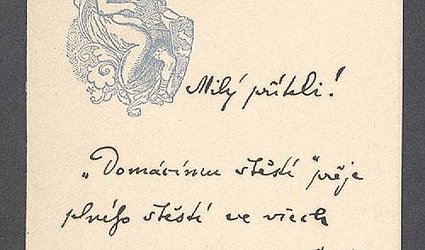 Milý příteli!
„Domácímu štěstí" přeje
plného štěstí ve všech